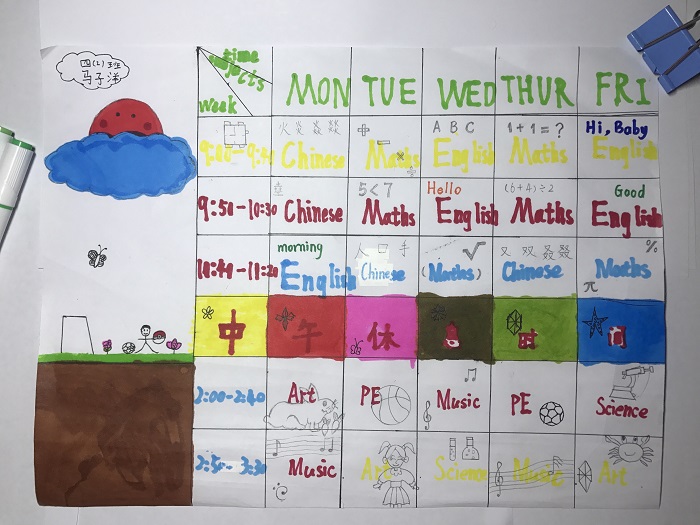 四(2)班
马子洋
time
subjects
week
MON TUE WED THUR FRI
火 炎 焱 燚
+ -
×
÷
A B C
1+1=?
Hi, Baby
9:00-9:40 Chinese Maths English Maths English
5<7
Hello
(6+4)÷2
Good
9:50-10:30 Chinese Maths English Maths English
morning
人 口 手
√
又 双 叒 叕
%
10:40-11:20 English Chinese (Maths) Chinese Maths
π
中 午 休 息 时 间
2:00-2:40 Art PE Music PE Science
2:50-3:30 Music Art Science Music Art